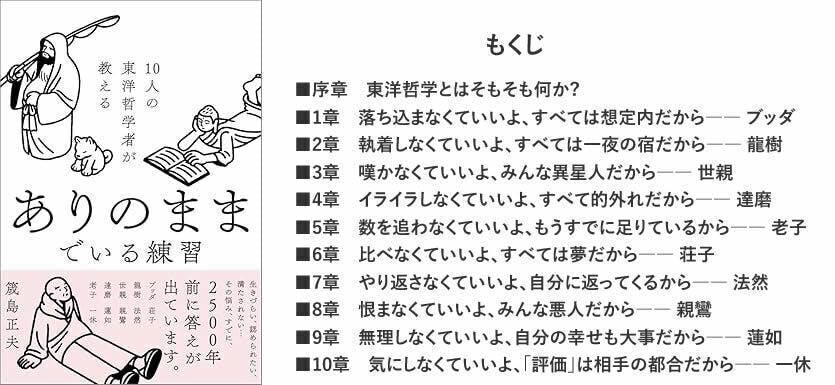 10人の
東洋哲学者が
教える
ありのまま
でいる練習
生きづらい、認められたい、
満たされない…
その悩み、すでに、
2500年
前に答えが
出ています。
ブッダ 荘子
龍樹 法然
世親 親鸞
達磨 蓮如
老子 一休
箴島正夫
もくじ
■序章 東洋哲学とはそもそも何か?
■1章 落ち込まなくていいよ、すべては想定内だから―― ブッダ
■2章 執着しなくていいよ、すべては一夜の宿だから―― 龍樹
■3章 嘆かなくていいよ、みんな異星人だから―― 世親
■4章 イライラしなくていいよ、すべて的外れだから―― 達磨
■5章 数を追わなくていいよ、もうすでに足りているから―― 老子
■6章 比べなくていいよ、すべては夢だから―― 荘子
■7章 やり返さなくていいよ、自分に返ってくるから―― 法然
■8章 恨まなくていいよ、みんな悪人だから―― 親鸞
■9章 無理しなくていいよ、自分の幸せも大事だから―― 蓮如
■10章 気にしなくていいよ、「評価」は相手の都合だから―― 一休